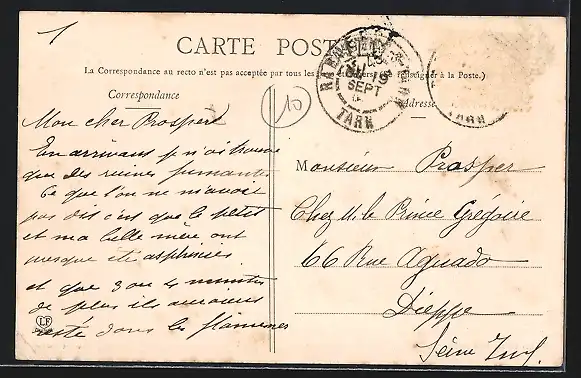 1
CARTE POST
La Correspondance au recto n'est pas acceptée par tous les à la Poste.)
Correspondance
10
RABASTENS
SEPT
TARN
TARN
Adresse
Mon cher Prosper
En arrivant je n'ai trouvé
que des ruines fumantes
Ce que l'on ne m'avait
pas dit c'est que le petit
et ma belle mère ont
presque été asphixiés
et que 3 ou 4 minutes
de plus ils auraient
resté dans les flammes
Monsieur Prosper
Chez M. le Prince Grégoire
66 Rue Aguado
Dieppe
Seine Inf.
LF